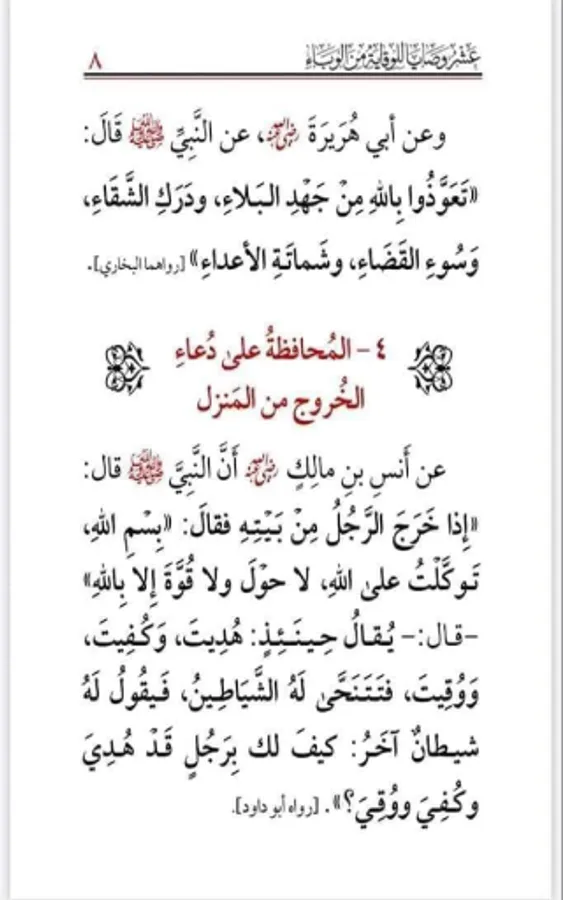 عَشْرُ وَصَايَا لِلْوِقَايَةِ مِنَ الْوَبَاءِ ٨
وعن أبي هُرَيرَةَ رضي الله عنه، عن النَّبِيِّ ﷺ قَالَ:
«تَعَوَّذُوا بِاللهِ مِنْ جَهْدِ البَلاءِ، ودَرَكِ الشَّقَاءِ،
وَسُوءِ القَضَاءِ، وشَماتَةِ الأعداءِ» [رواهما البخاري].
٤ - المُحافظةُ على دُعاءِ
الخُروج من المَنزل
عن أَنسِ بنِ مالِكٍ رضي الله عنه أَنَّ النَّبِيَّ ﷺ قال:
«إِذا خَرَجَ الرَّجُلُ مِنْ بَيْتِهِ فقالَ: «بِسْمِ اللهِ،
تَوكَّلْتُ على اللهِ، لا حوْلَ ولا قُوَّةَ إِلا بِاللهِ»
-قال:- يُقالُ حِينَئِذٍ: هُدِيتَ، وَكُفِيتَ،
وَوُقِيتَ، فتَتَنَحَّى لَهُ الشَّيَاطِينُ، فَيقُولُ لَهُ
شيطانٌ آخَرُ: كيفَ لك بِرَجُلٍ قَدْ هُدِيَ
وكُفِيَ ووُقِيَ؟». [رواه أبو داود].